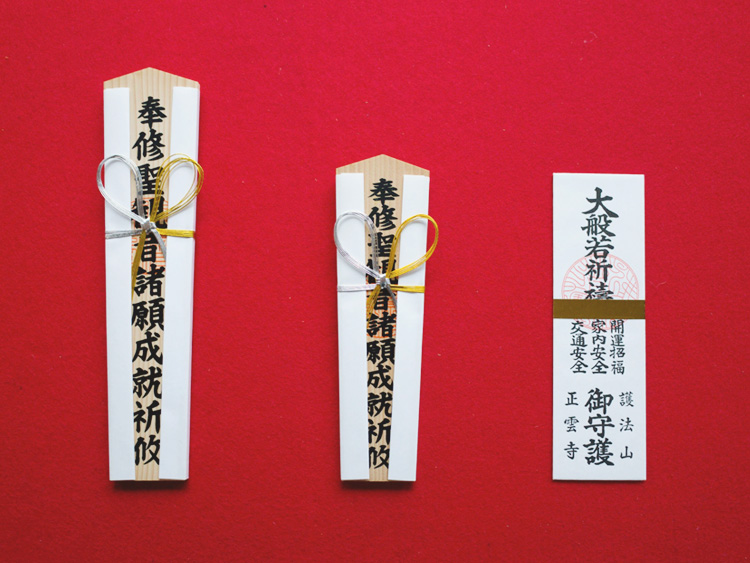 奉修聖観音諸願成就祈攸
奉修聖観音諸願成就祈攸
大般若祈禱
開運招福
家内安全
交通安全
護法山
御守護
正雲寺